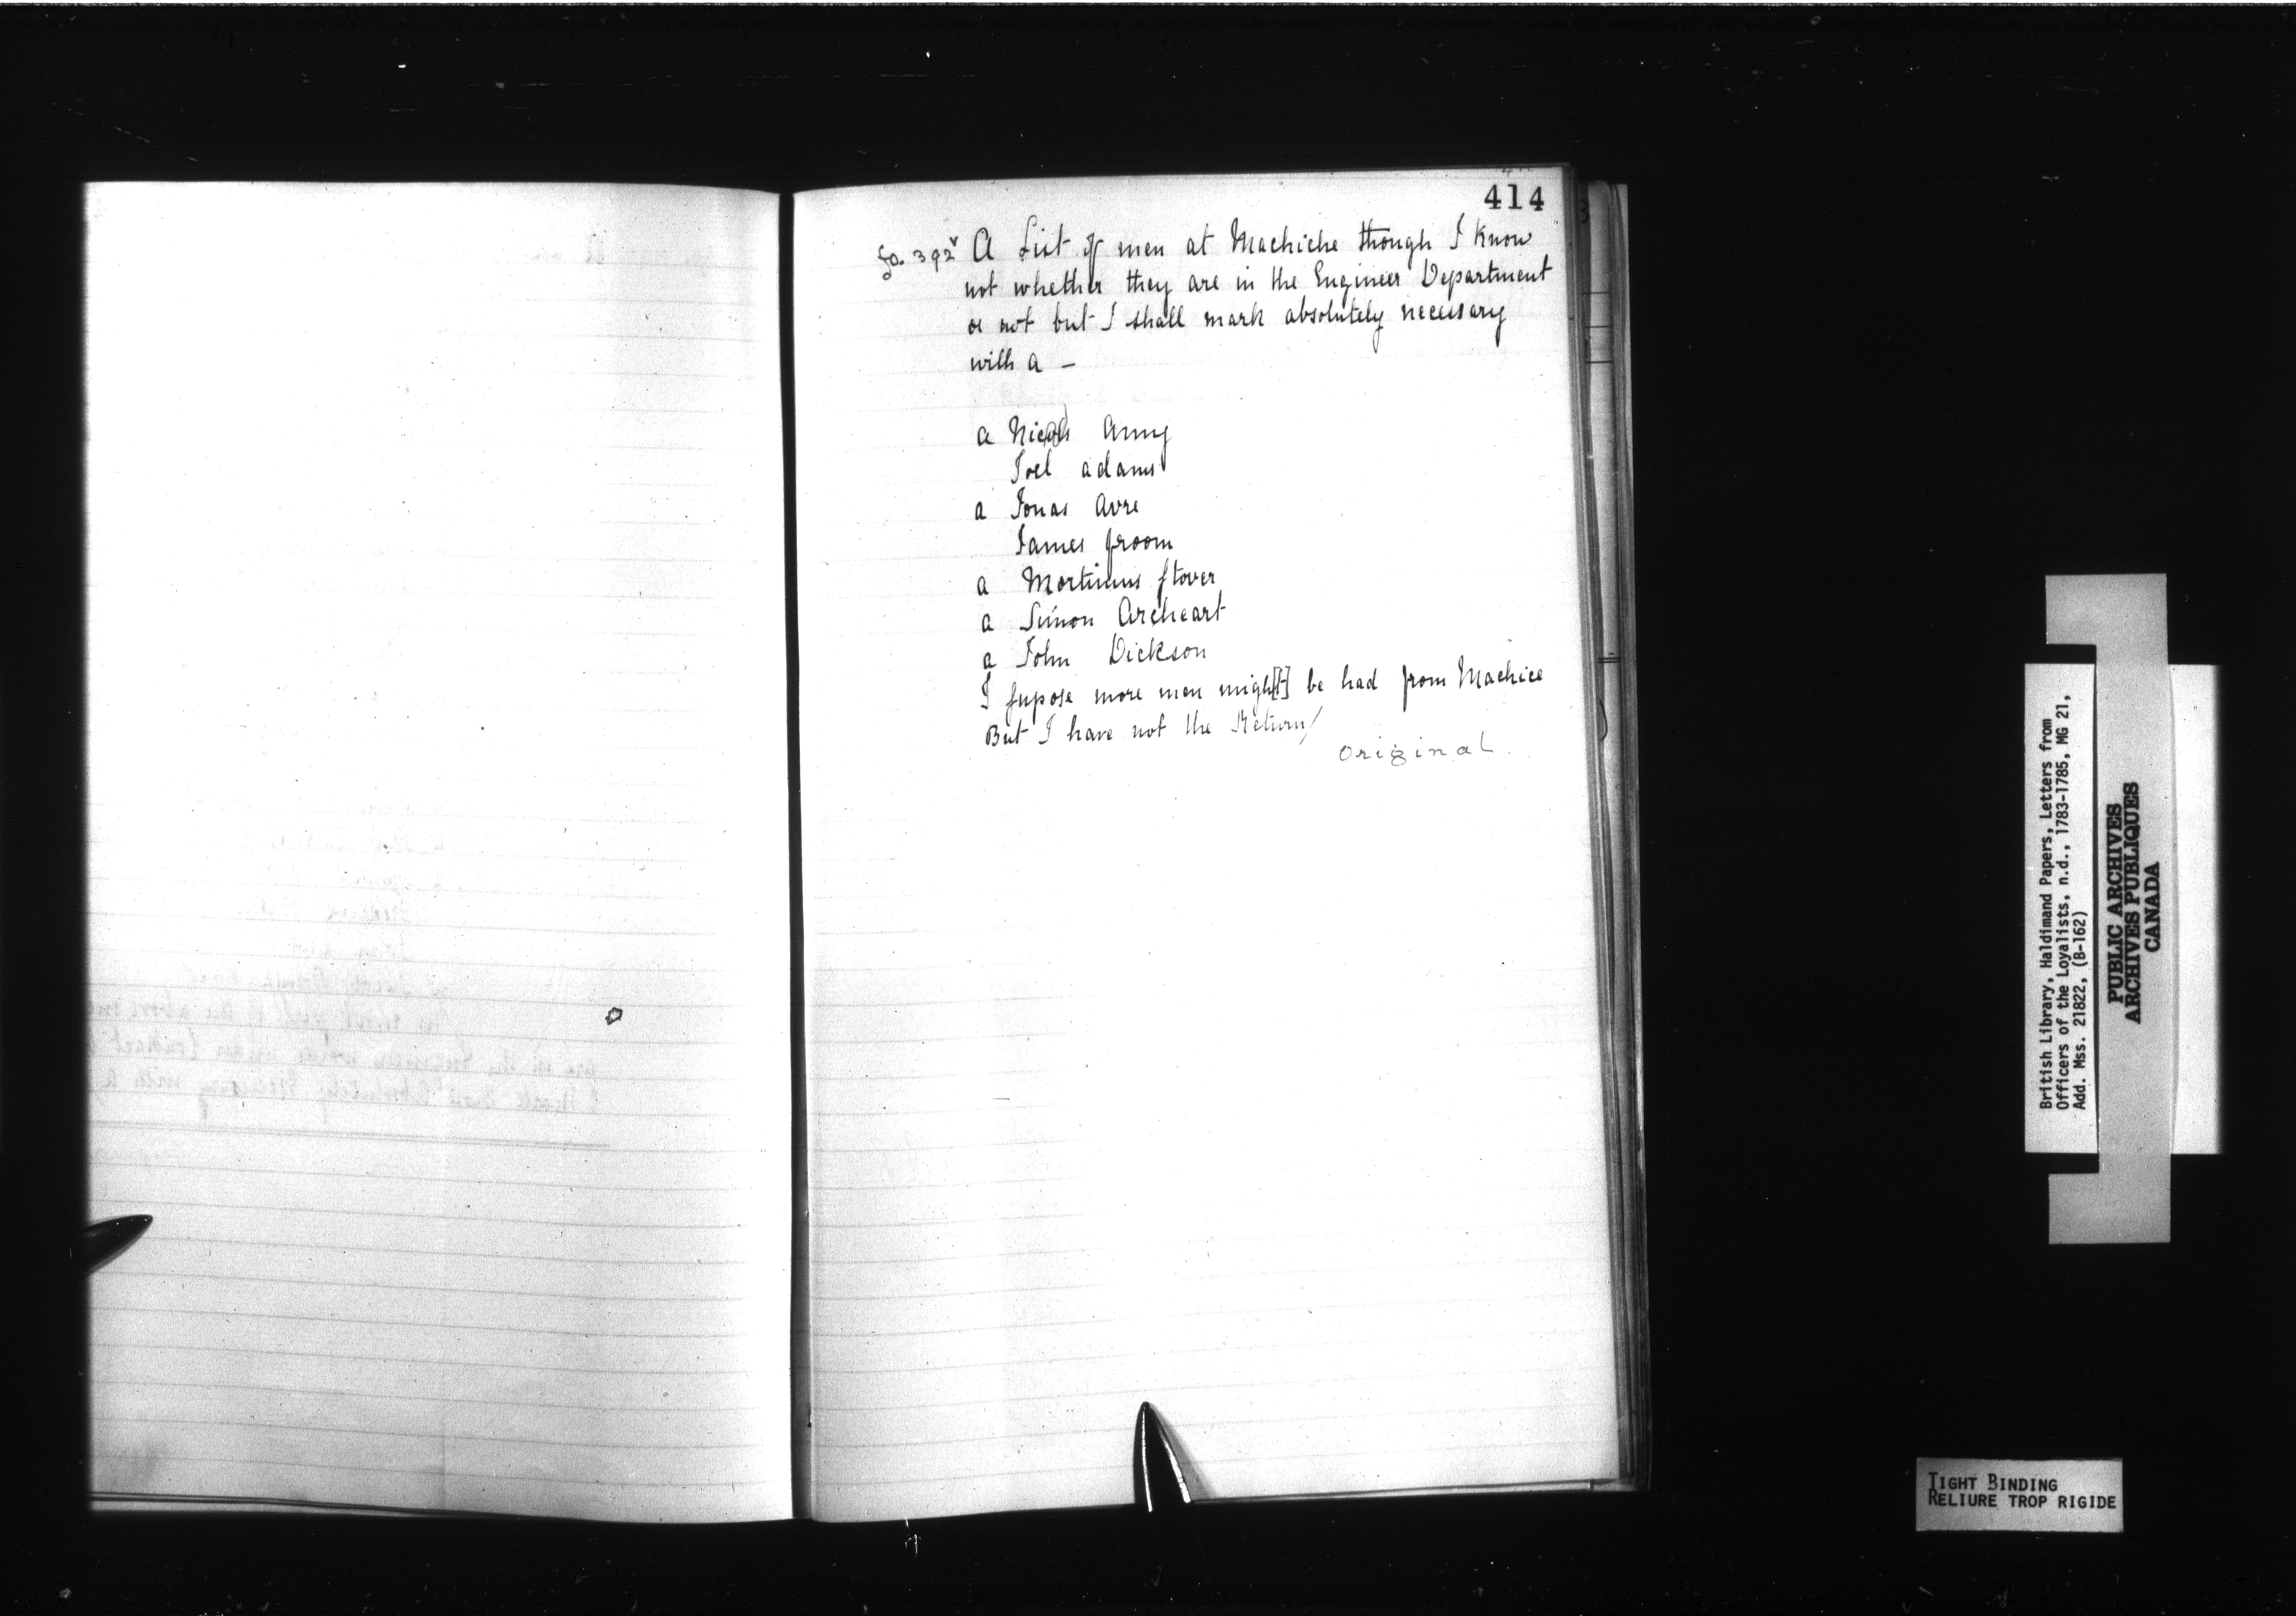 414
fo. 392v A List of men at Machiche though I know
not whether they are in the Engineer Department
or not but I shall mark absolutely necessary
with a —
a Army
Joel adams
a Jonas Avre
James froom
a Mortimus ſtover
a Simon Archeart
a John Dickson
I ſupose more men migh[t] be had from Machice
But I have not the Return/
original.
British Library, Haldimand Papers, Letters from
Officers of the Loyalists, n.d., 1783-1785, MG 21,
Add. Mss. 21822, (B-162)
PUBLIC ARCHIVES
ARCHIVES PUBLIQUES
CANADA
TIGHT BINDING
RELIURE TROP RIGIDE